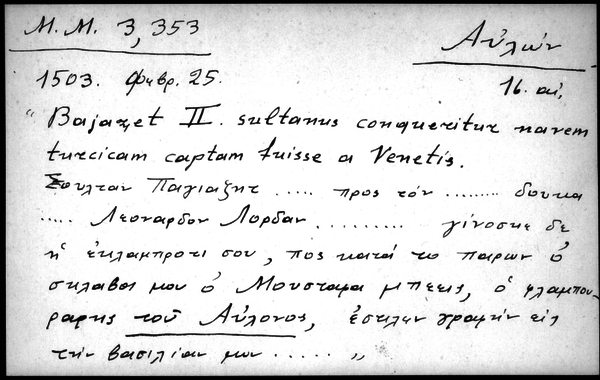 M. M. 3, 353
Αὐλών
1503. Φεβρ. 25.
16. αἰ,
“ Bajazet II. sultanus conqueritur navem
turcicam captam fuisse a Venetis.
Σουλταν Παγιαζητ ..... προς τόν ........ δουκα
..... Λεοναρδον Λορδαν ......... γίνοσκε δε
ἡ ἐκλαμπροτι σου, πος κατά το παρων ὁ
σκλαβος μου ὁ Μουσταφα μπεεις, ὁ φλαμπου-
ραρης τοῦ Αὐλονος, ἐστιλεν γραφήν εις
τήν βασιλίαν μου ..... „